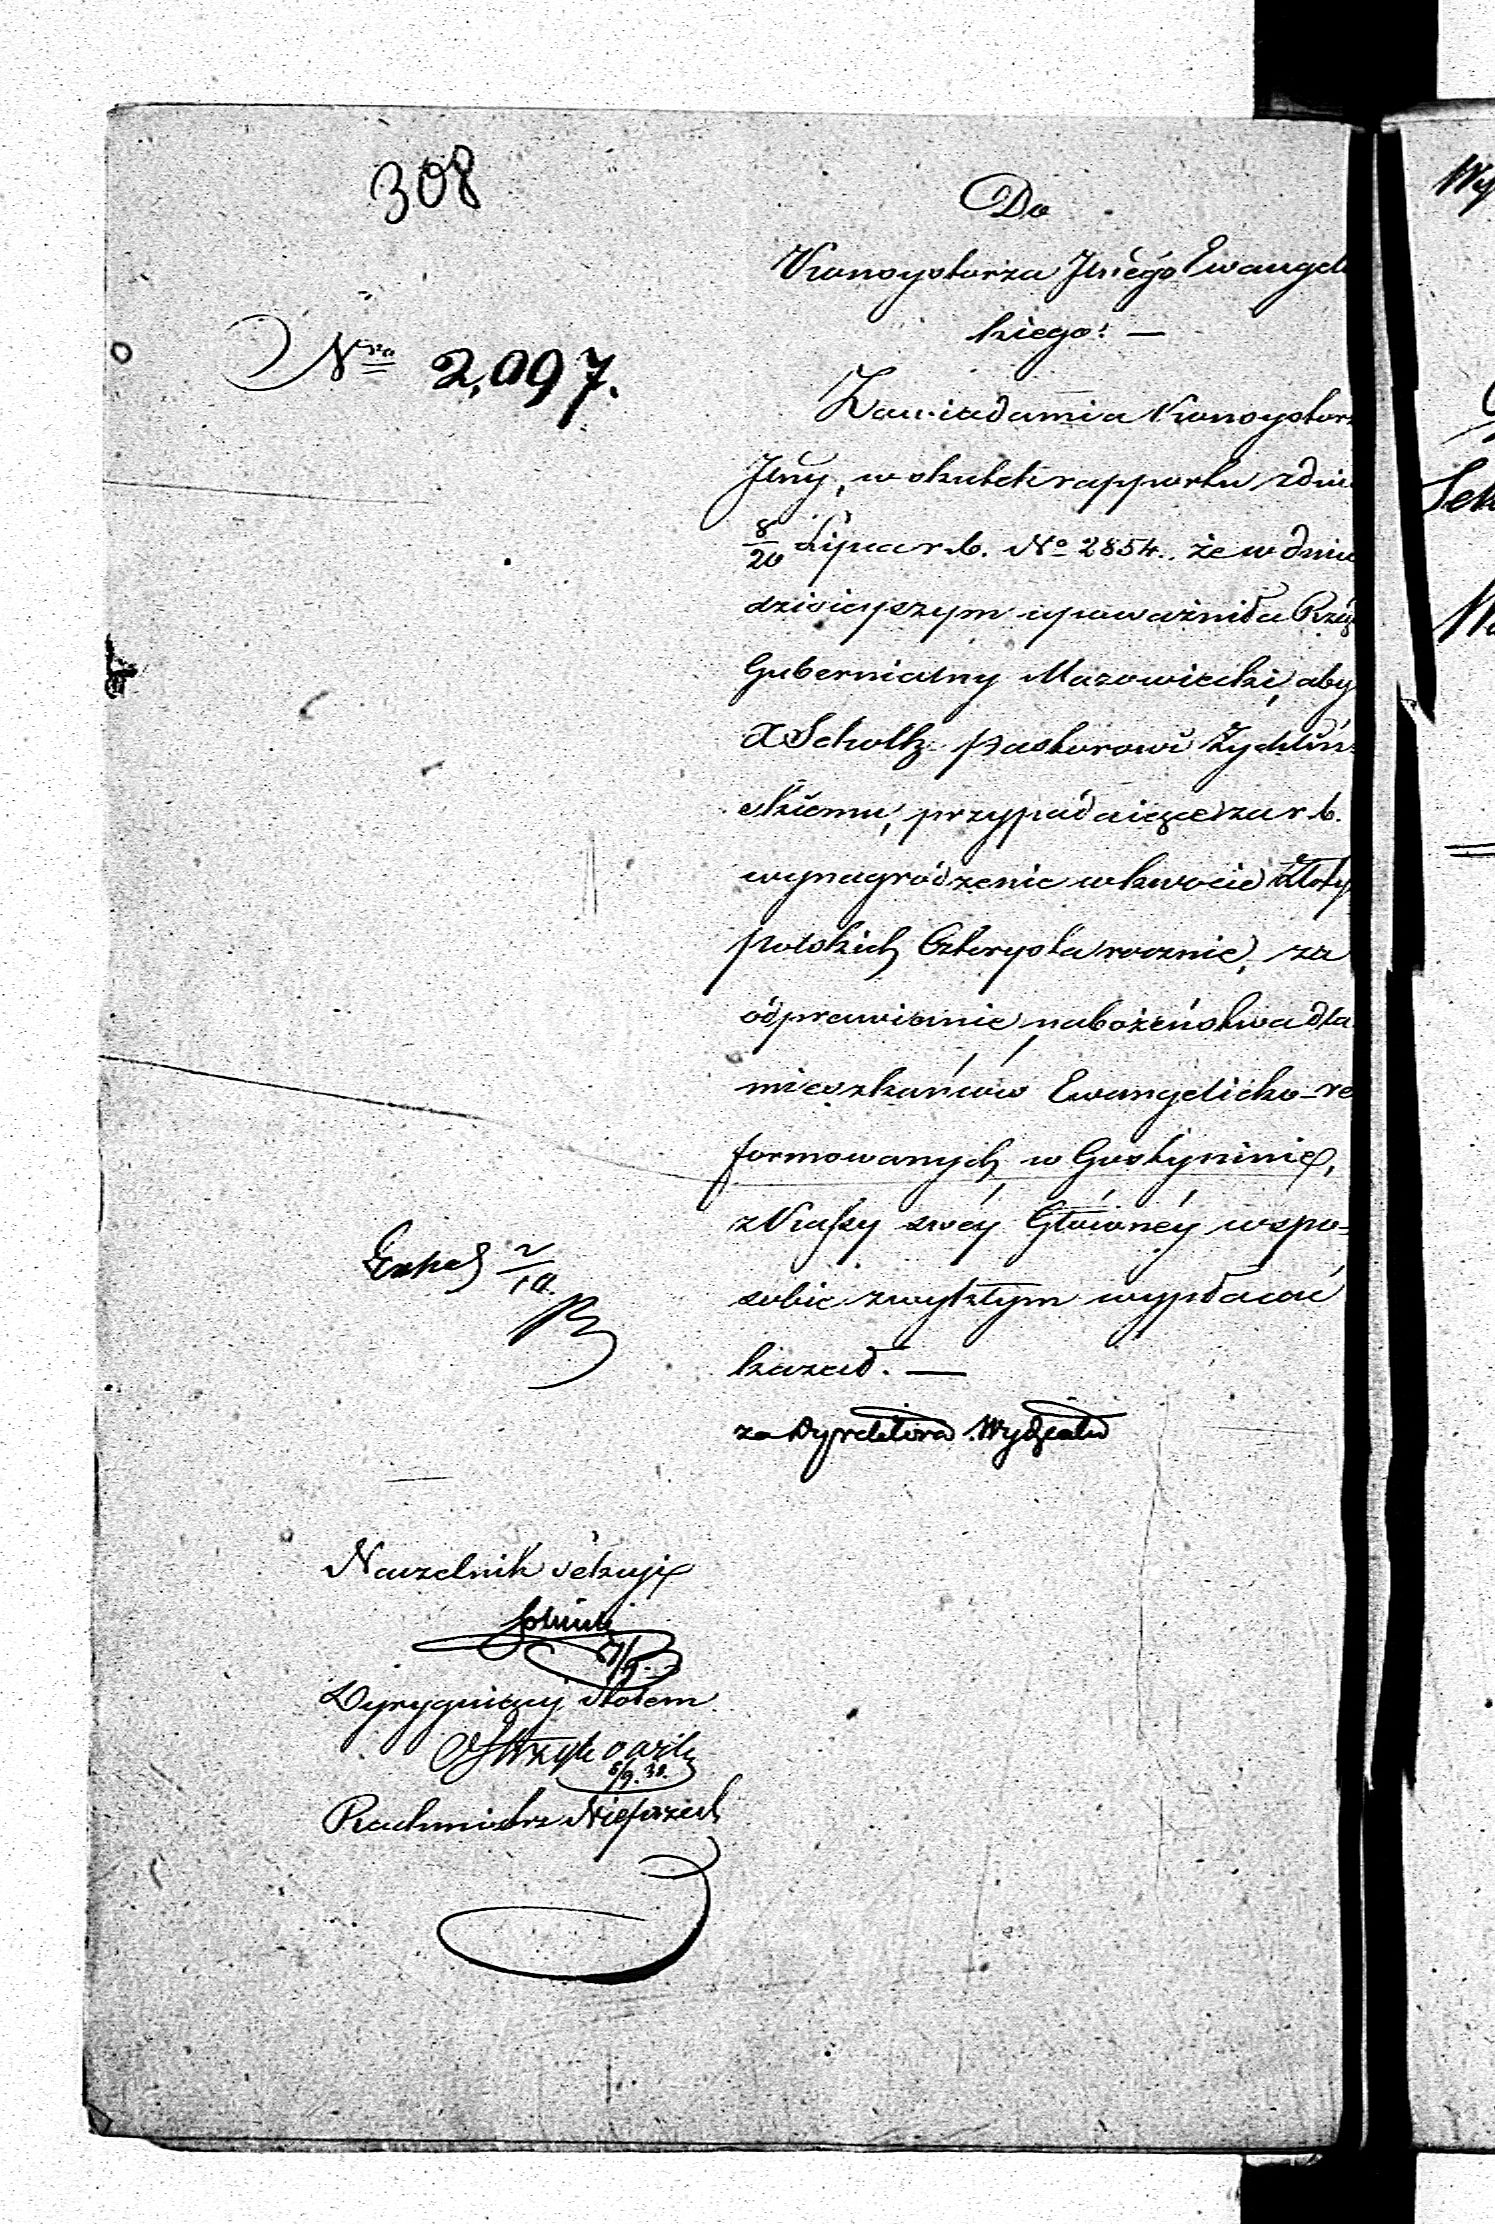 308
Do
Konsystorza Jlnégo Ewangeli
kiego! —
Nro 2,097.
Zawiadamia Konsystorz
Jlny, w skutek rapportu z dnia
8/20 Lipca r. b. No 2854. że w dniu
dzisieyszym upoważniła Rząd
Gubernialny Mazowiecki, aby
X Scholtz Pastorowi Żychliń
skiemu, przypadaiące za r. b.
wynagrodzenie w kwocie Złoty
polskich Czterysta rocznie, za
odprawianie nabożeństwa dla
mieszkańców Ewangelicko-re
formowanych w Gostyninie,
z Kassy swéy Głównéy w spo-
sobie zwykłym wypłacać
kazał. —
za Dyrektora Wydziału
Naczelnik Sekcyi
Dyryguiący stołem
8/9. 38.
Rachmistrz